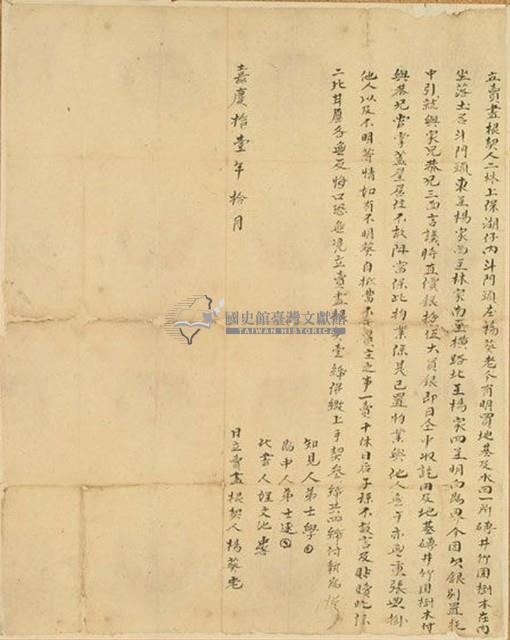 立賣盡根契人二林上保湖仔內斗門頭庄楊葵老今有明買地基及水田一所磚井竹圍樹木在內
坐落土名斗門頭東至楊家西至林家南至橫路北至楊家四至明白為界今因欠銀別置托
中引就與家兄恭兄三面言議時直價銀拾伍大員銀即日仝中收訖田及地基磚井竹圍樹木付
與恭兄前掌蓋屋居住不敢阻當保此物業係是己置物業與他人無干亦無重張典掛
他人以及不明等情如有不明葵自抵當不干買主之事一賣千休日后子孫不敢言及貼贖此係
二比甘愿各無反悔口恐無憑立賣盡根契壹紙併繳上手契叁紙共四紙付執為炤
嘉慶拾壹年拾月
知見人弟士學
為中人弟士運
代書人姪文池
日立賣盡根契人楊葵老
國史館臺灣文獻館
TAIWAN HISTORICA